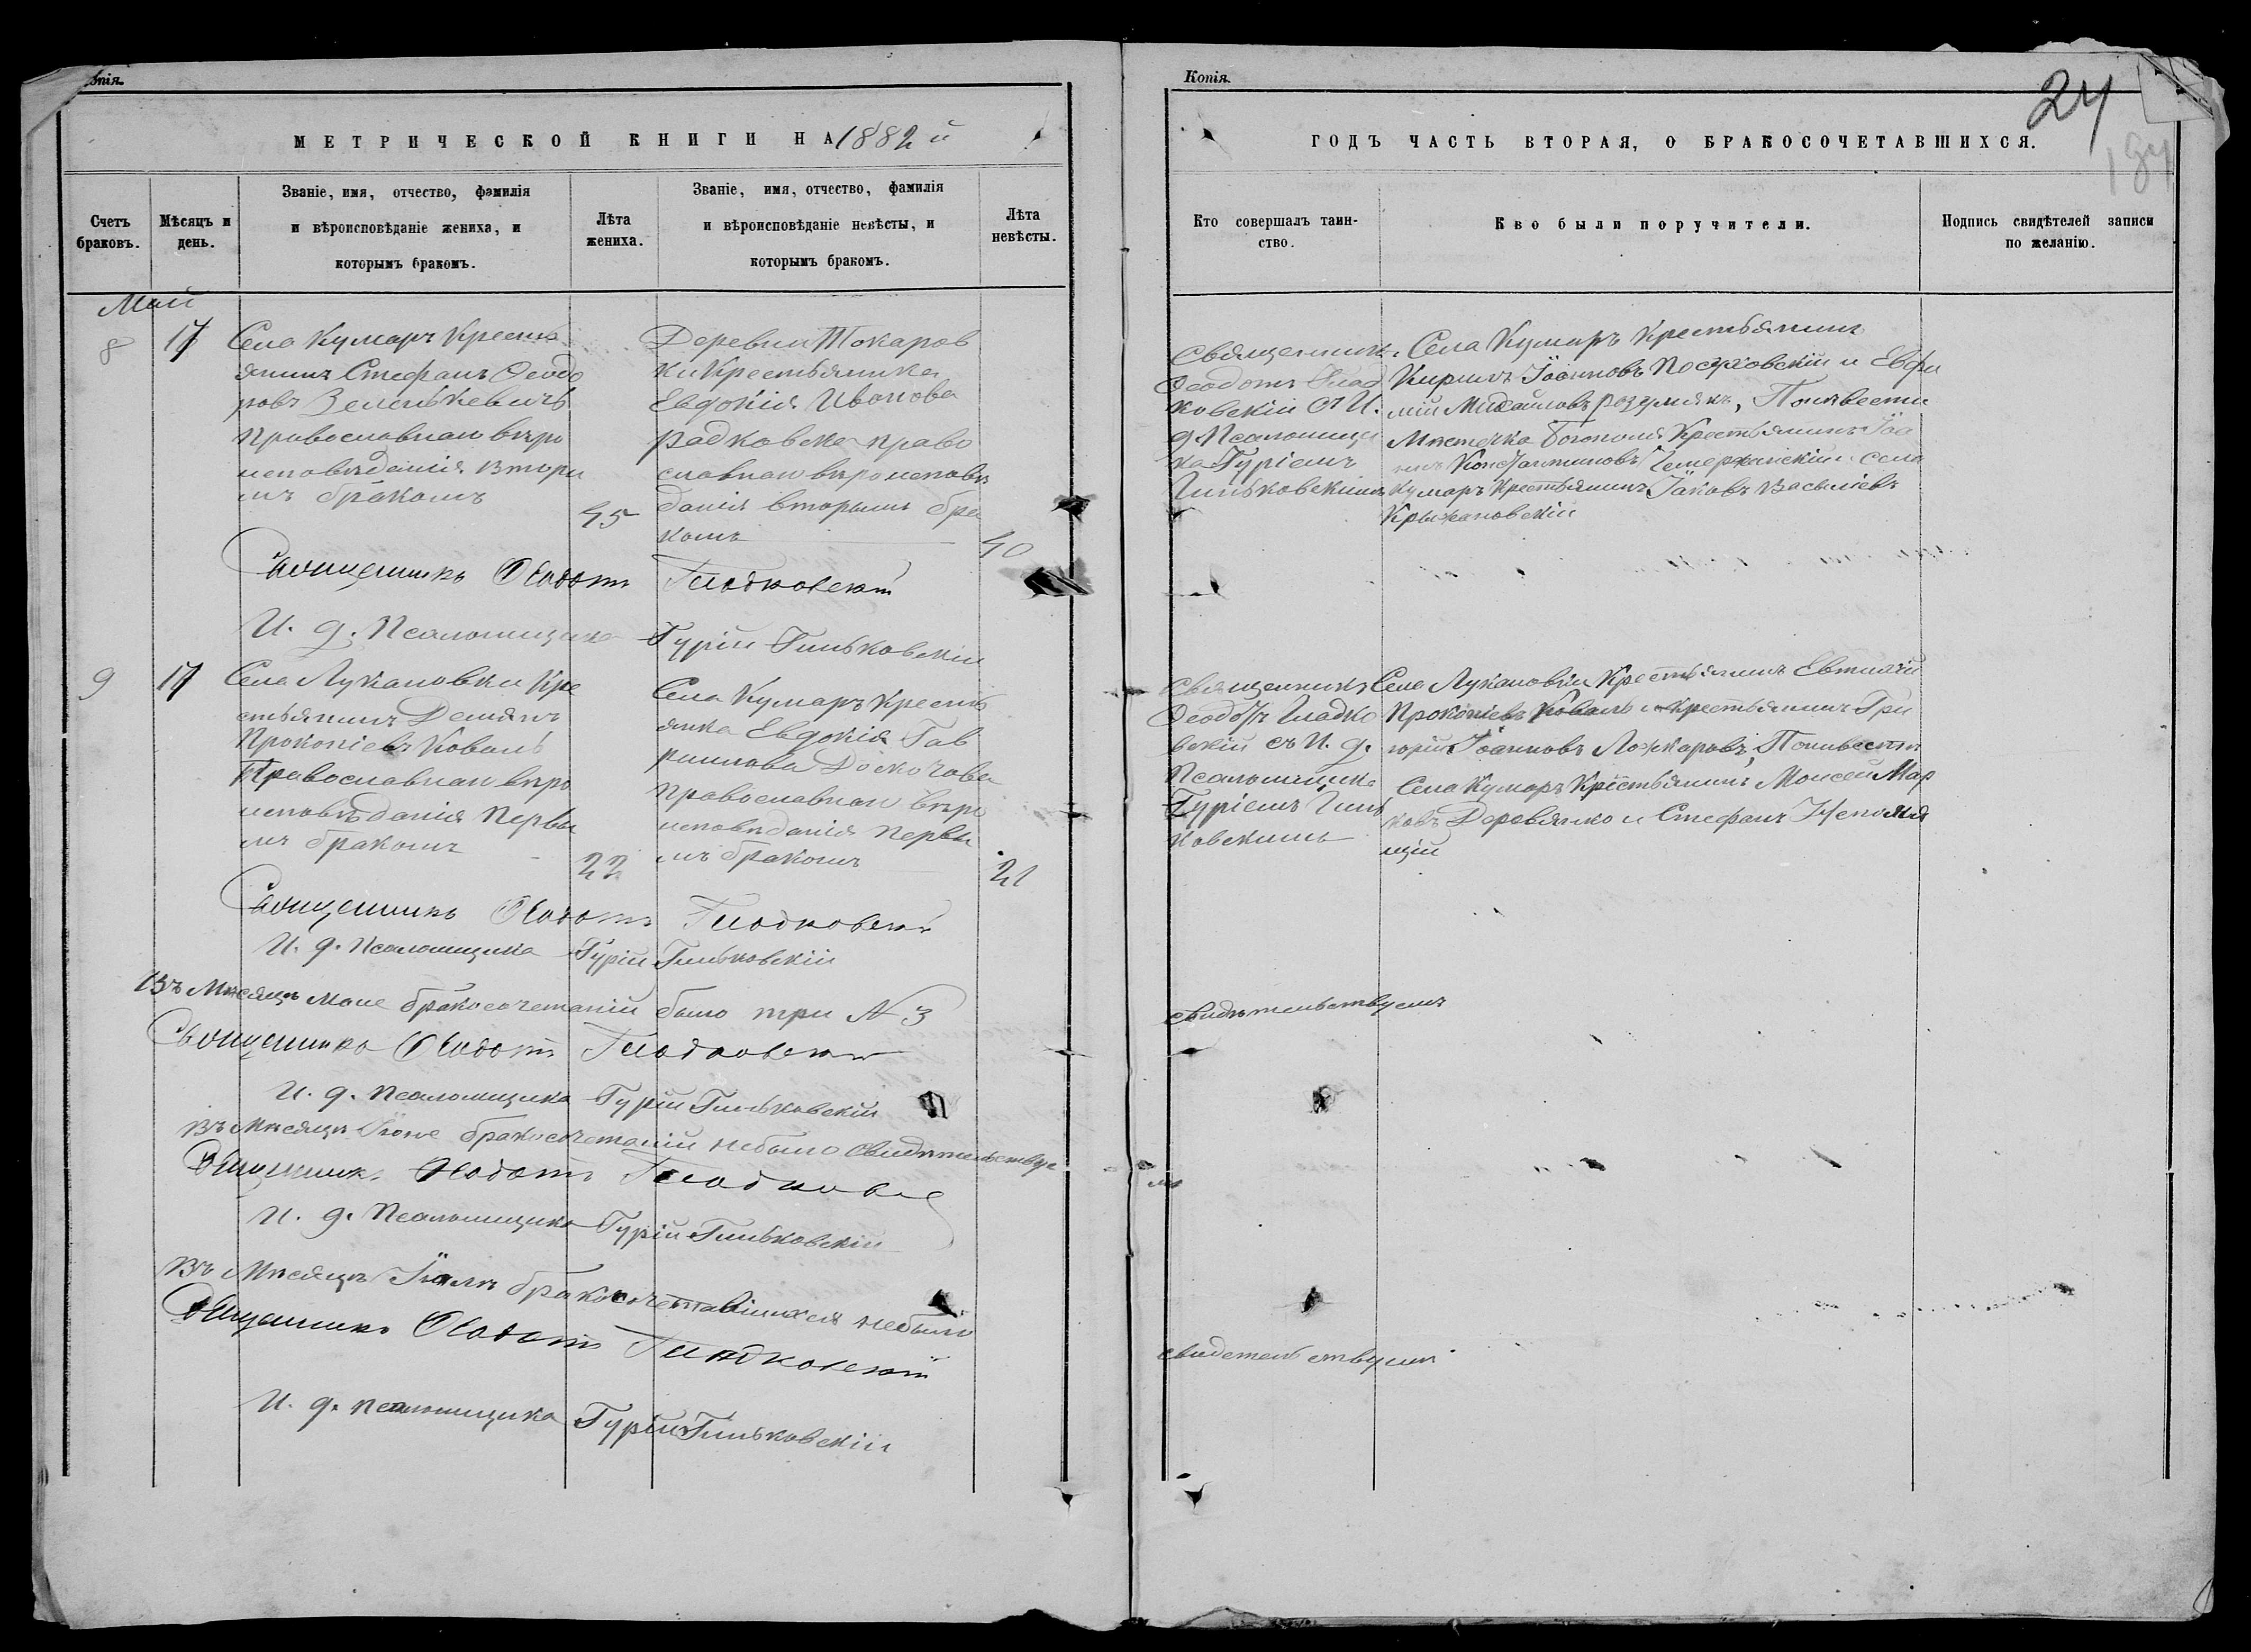 Копія.
МЕТРИЧЕСКОЙ КНИГИ НА 1882 й
Счетъ браковъ.
Мѣсяцъ и день.
Званіе, имя, отчество, фамилія
и вѣроисповѣданіе жениха, и
которымъ бракомъ.
Лѣта жениха.
Званіе, имя, отчество, фамилія
и вѣроисповѣданіе невѣсты, и
которымъ бракомъ.
Лѣта невѣсты.
Май
8
17
Села Кумаръ Кресть
янинъ Стефанъ Ѳеодо
ровъ Зеленькевичъ
Православнаго вѣро
исповѣданія Вторы
мъ бракомъ
45
Деревни Токаров
ки Крестьянка
Евдокія Иванова
Радковска право
славнаго вѣроисповѣ
данія вторымъ бра
комъ
40
Священникъ Ѳеодотъ Гладковскій
И. д. Псаломщика Гурій Гиньковскій
9
17
Села Лукановки Кре
стьянинъ Демянъ
Прокопіевъ Коваль
Православнаго вѣро
исповѣданія Первы
мъ бракомъ
22
Села Кумаръ Кресть
янка Евдокія Гав
риилова Доскочова
Православнаго вѣро
исповѣданія Первы
мъ бракомъ
21
Священникъ Ѳеодотъ Гладковскій
И. д. Псаломщика Гурій Гиньковскій
Въ Мѣсяцѣ Маіе бракосочетаній было три № 3
Священникъ Ѳеодотъ Гладковскій
И. д. Псаломщика Гурій Гиньковскій
Въ Мѣсяцѣ Іюне бракосочетаній небыло Свидѣтельствуе
Священникъ Ѳеодотъ Гладковс
И. д. Псаломщика Гурій Гиньковскій
Въ Мѣсяцѣ Іюлѣ бракосочетавшихся небыло
Священникъ Ѳеодотъ Гладковскій
И. д. псаломщика Гурій Гиньковскій
Копія.
24
184
ГОДЪ ЧАСТЬ ВТОРАЯ, О БРАКОСОЧЕТАВШИХСЯ.
Кто совершалъ таин-
ство.
Кво были поручители.
Подпись свидѣтелей записи
по желанію.
Священникъ
Ѳеодотъ Глад
ковскій с И.
д. Псаломщи
ка Гуріемъ
Гиньковскимъ
Села Кумаръ Крестьянинъ
Кирилъ Іоанновъ Посуховскій и Евфи
мій Михайловъ Розумякъ, По невести
Мѣстечка Богополя Крестьянинъ Іоа
нъ Константиновъ Чемержинскій и села
Кумаръ Крестьянинъ Іаковъ Васыліевъ
Крыжановскій
Священникъ
Ѳеодотъ Гладко
вскій съ И. д.
Псаломщика
Гуріемъ Гинь
ковскимъ
Села Лукановки Крестьянинъ Евтихій
Прокопіевъ Коваль и крестьянинъ Гри
горій Іоанновъ Ложкаровъ, По невести
Села Кумаръ Крестьянинъ Моисей Мар
ковъ Деревянко и Стефанъ Непомня
щій
свидѣтельствуемъ
мъ
свидетельствуемъ